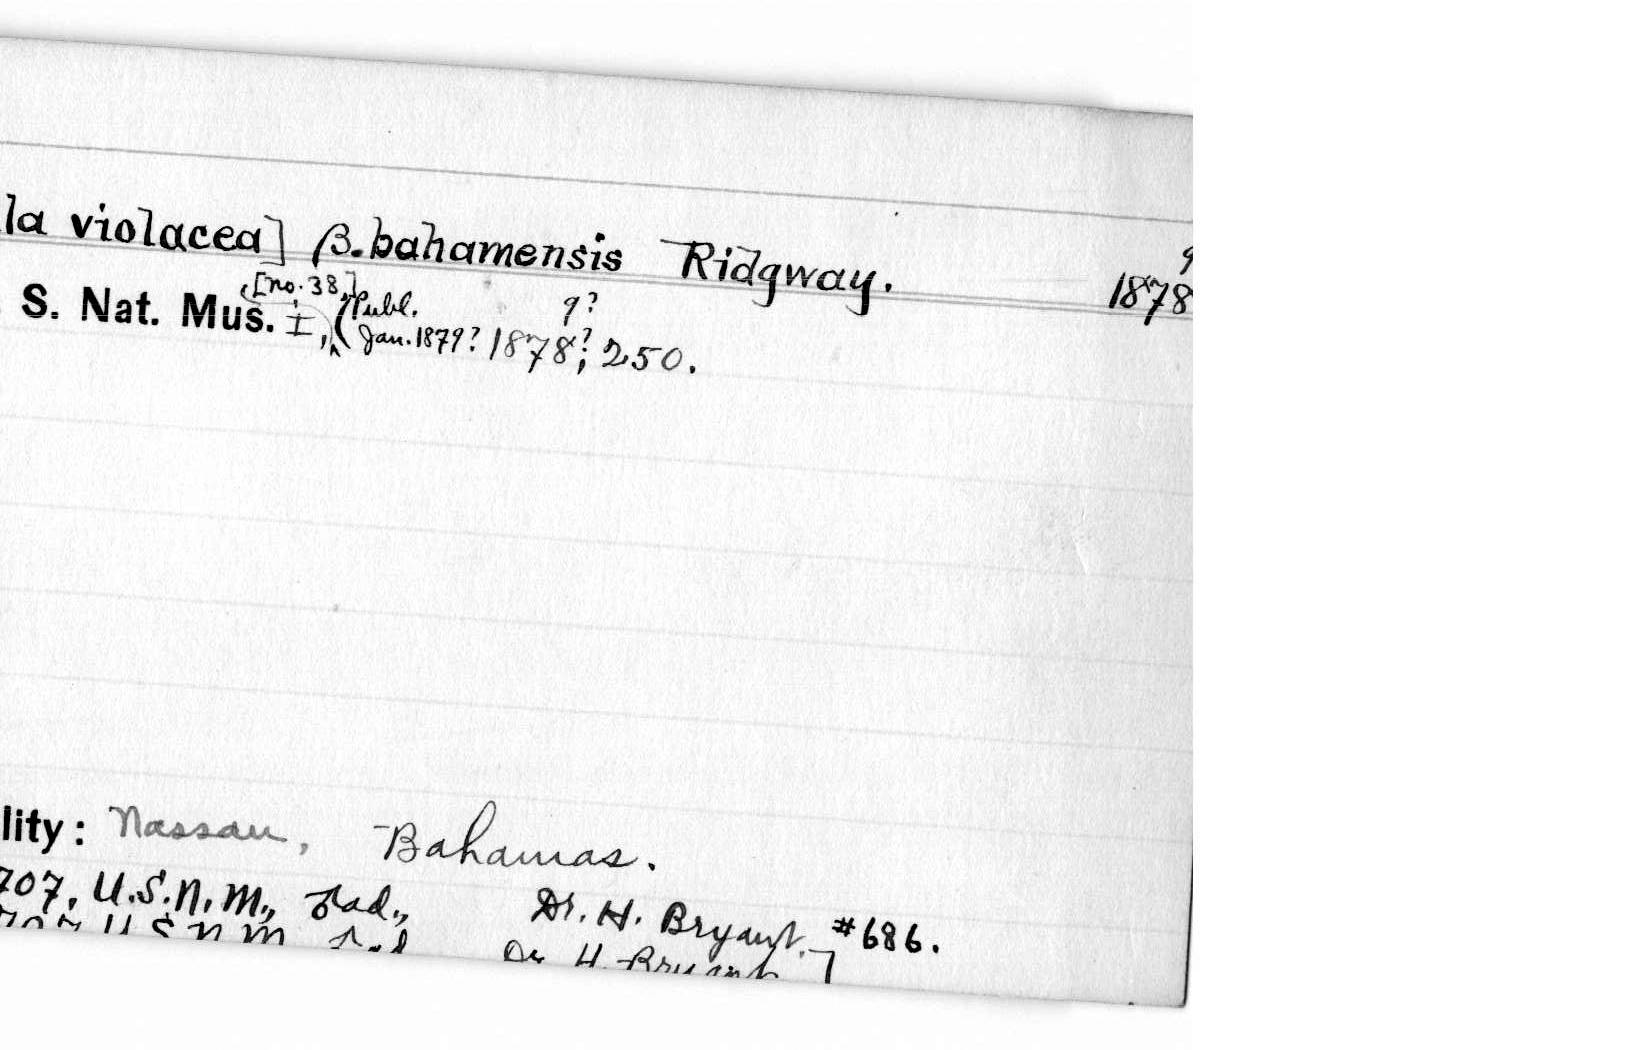 la violacea] β. bahamensis Ridgway.
9
1878
[no. 38,] Publ. 9?
S. Nat. Mus. I, ( Jan. 1879? 1878?; 250.
lity: Nassau, Bahamas.
707, U.S.N.M., Dr. H. Bryant. #686.
707 U S N M Dr H. Bryant ]